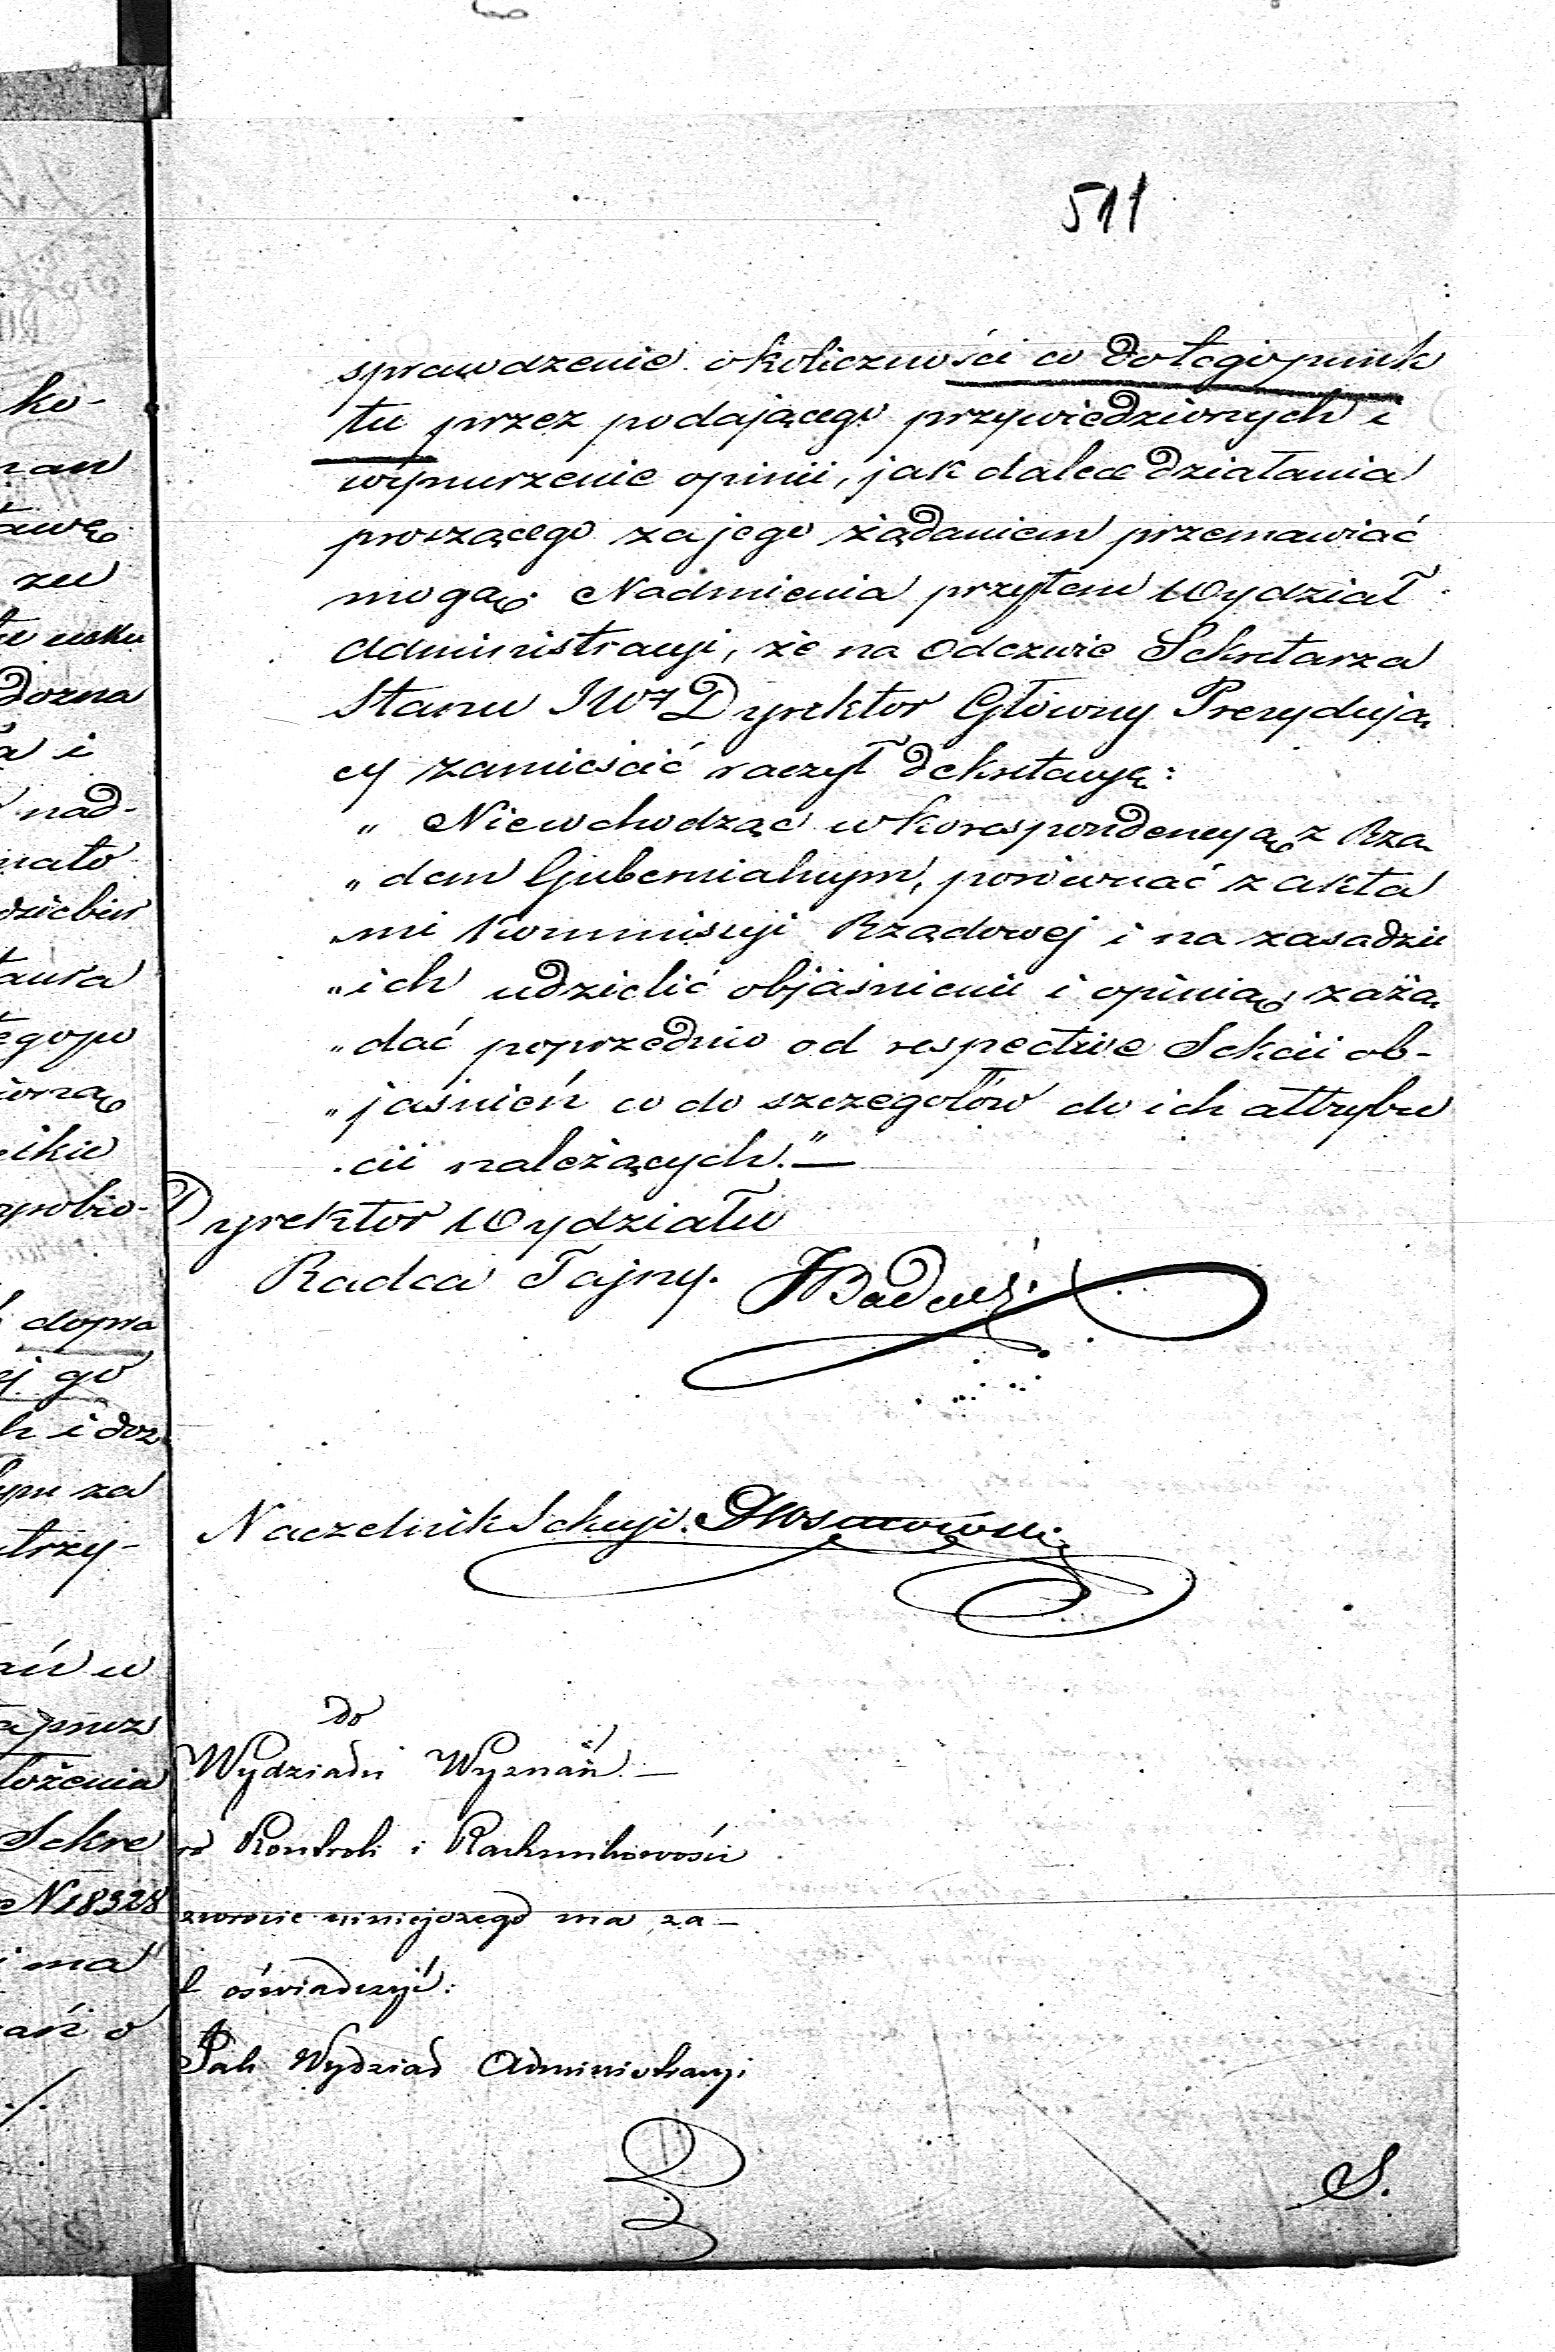 511
sprawdzenie okoliczności co do tego punk
tu przez podającego przywiedzionych i
wynurzenie opinii, jak dalece działania
proszącego za jego żądaniem przemawiać
mogą. Nadmienia przytem Wydział
Administracyi, że na Odezwie Sekretarza
Stanu JWy Dyrektor Główny Prezydują
cy zamieścić raczył dekretacyę:
„ Niewchodząc w korespondencyą z Rzą
„ dem Gubernialnym, porównać z akta
„ mi Kommissyi Rządowej i na zasadzie
„ ich udzielić objaśnienie i opinią, zażą
„ dać poprzednio od respective Sekcii ob-
„ jaśnień co do szczegołów do ich attrybu
„ cii należących."—
Dyrektor Wydziału
Radca Tajny.
Naczelnik Sekcyi.
do
Wydziału Wyznań.—
Kontroli i Rachunkowości
zwrocie niniejszego ma za-
oświadczyć:
Jak Wydział Administracyi
S.
ko-
tawę
zu
dozna
i
nad-
tego po
dopra
go
h i doz
za
trzy-
łożenia
Sekre
N18328
ma